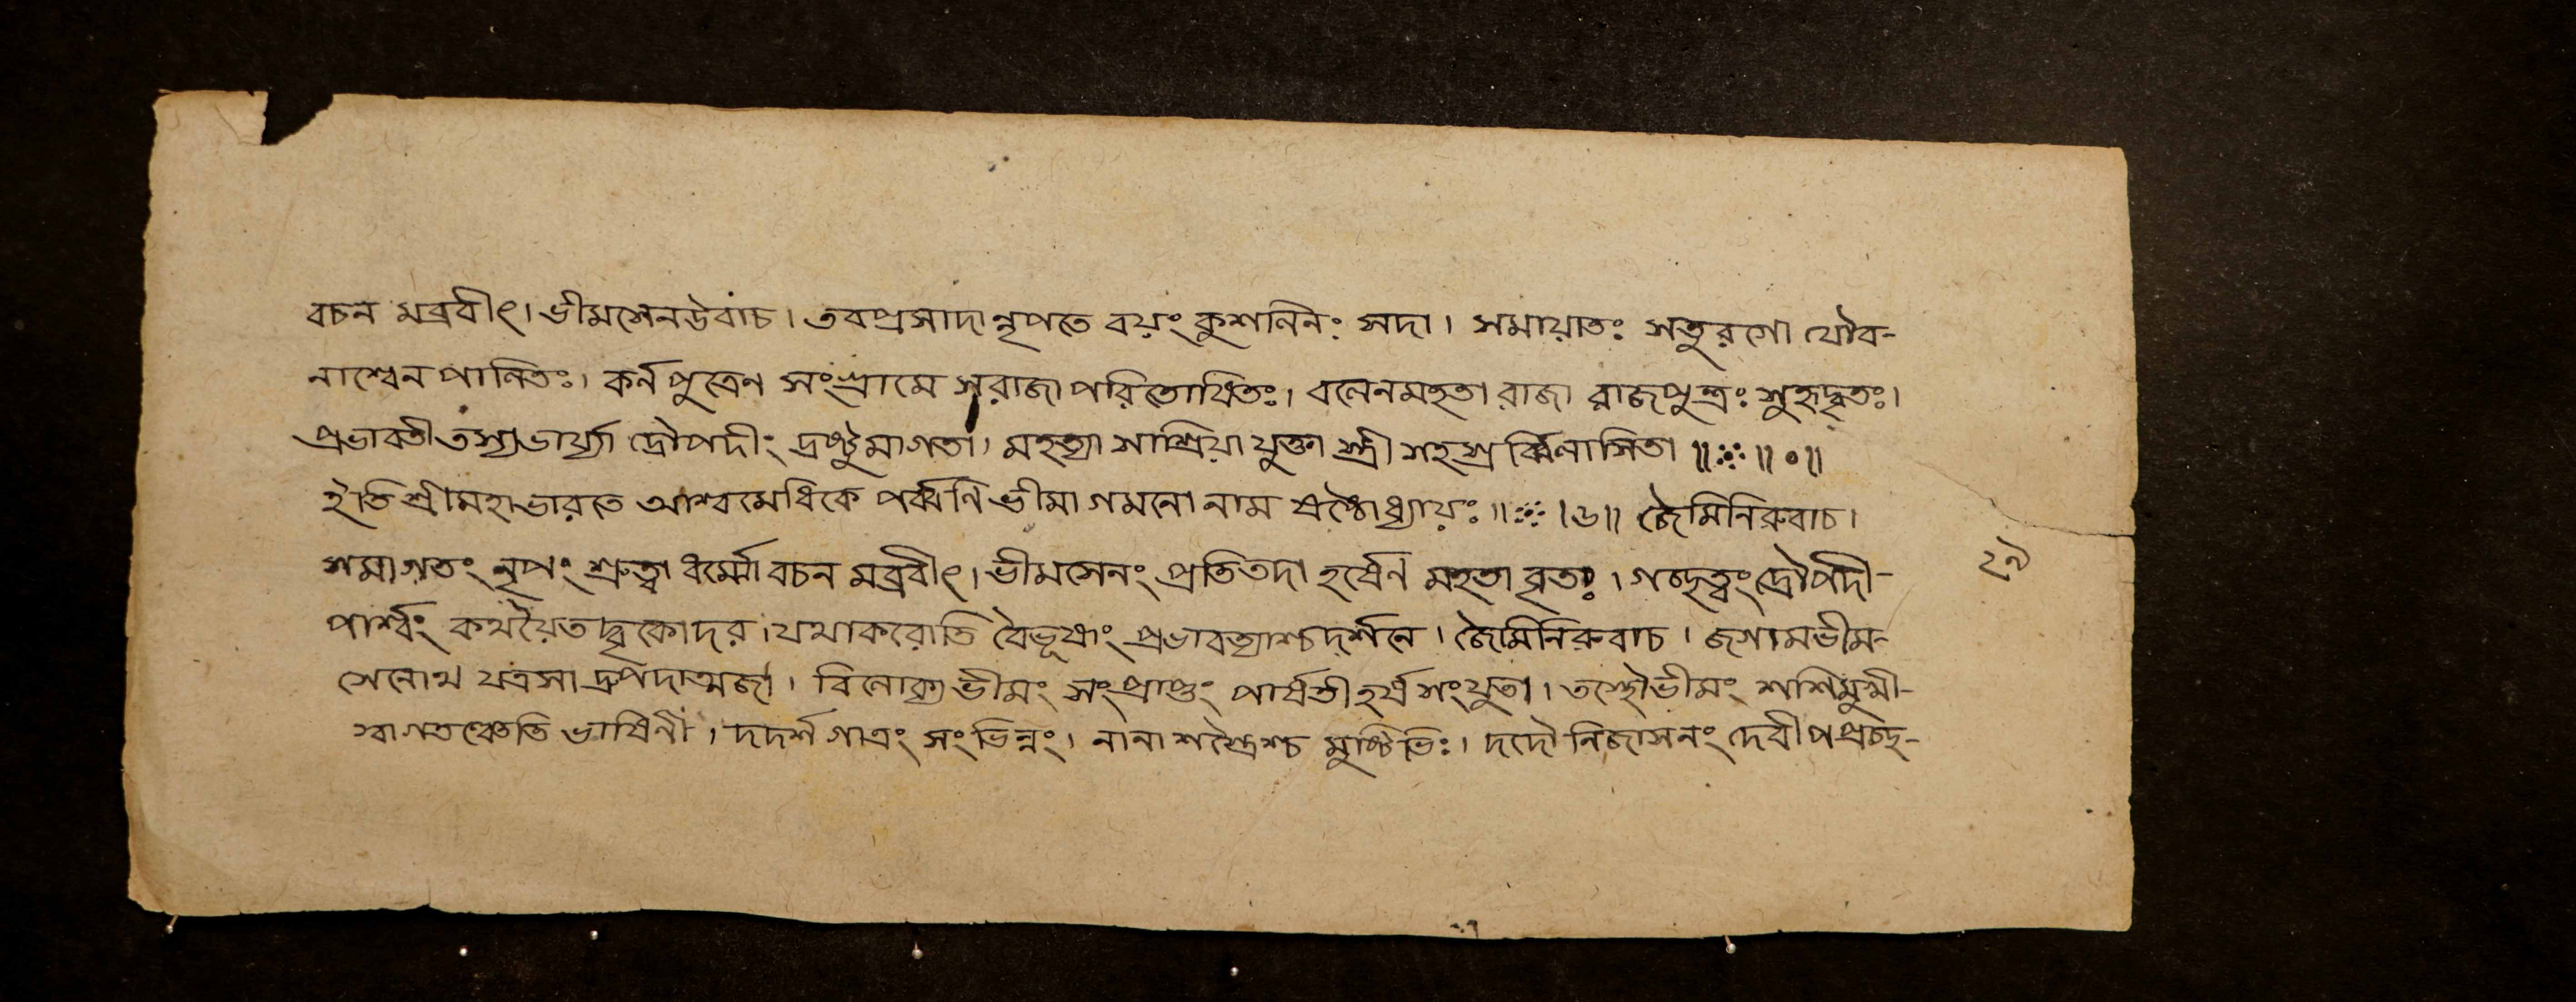 বচন মব্রবীৎ। ভীমসেনউবাচ। তবপ্রসাদা নৃপতে বয়ং কুশলিনঃ সদা। সমায়াতঃ সতুরগো যৌব-
নাশ্বেন পালিতঃ। কর্ন পুত্রেণ সংগ্রামে সরাজা পরিতোষিতঃ। বলেনমহতা রাজা রাজপুত্রঃ সুহৃদ্বৃতঃ।
প্রভাবতী তস্যভার্য্যা দ্রৌপদীং দ্রষ্টুমাগতা। মহত্যা সাশ্রিয়া যুক্তা স্ত্রী সহস্র র্ব্বিলাসিতা॥ ॥ ০ ॥
ইতি শ্রীমহাভারতে আশ্বমেধিকে পর্ব্বণি ভীমা গমনো নাম ষষ্ঠোধ্যায়ঃ॥ ।৬॥ জৈমিনিরুবাচ।
সমাগতং নৃপং শ্রুত্বা ধর্ম্মো বচন মব্রবীৎ। ভীমসেনং প্রতিতদা হর্ষেণ মহতা বৃতঃ। গচ্ছত্বং দ্রৌপদী-
পার্শ্বং কথয়ৈতদ্বৃকোদর। যথাকরোতি বৈভূষাং প্রভাবত্যাশ্চদর্শনে। জৈমিনিরুবাচ। জগামভীম-
সেনোথ যত্রসা দ্রুপদাত্মজা। বিলোক্য ভীমং সংপ্রাপ্তং পার্ষতী হর্ষ সংযুতা। তস্থৌভীমং শশিমুখী-
স্বাগতঞ্চেতি ভাষিণী। দদর্শ গাত্রং সংভিন্নং। নানা শস্ত্রৈশ্চ মুষ্টিভিঃ। দদৌ নিজাসনং দেবী পপ্রচ্ছ-
২৯